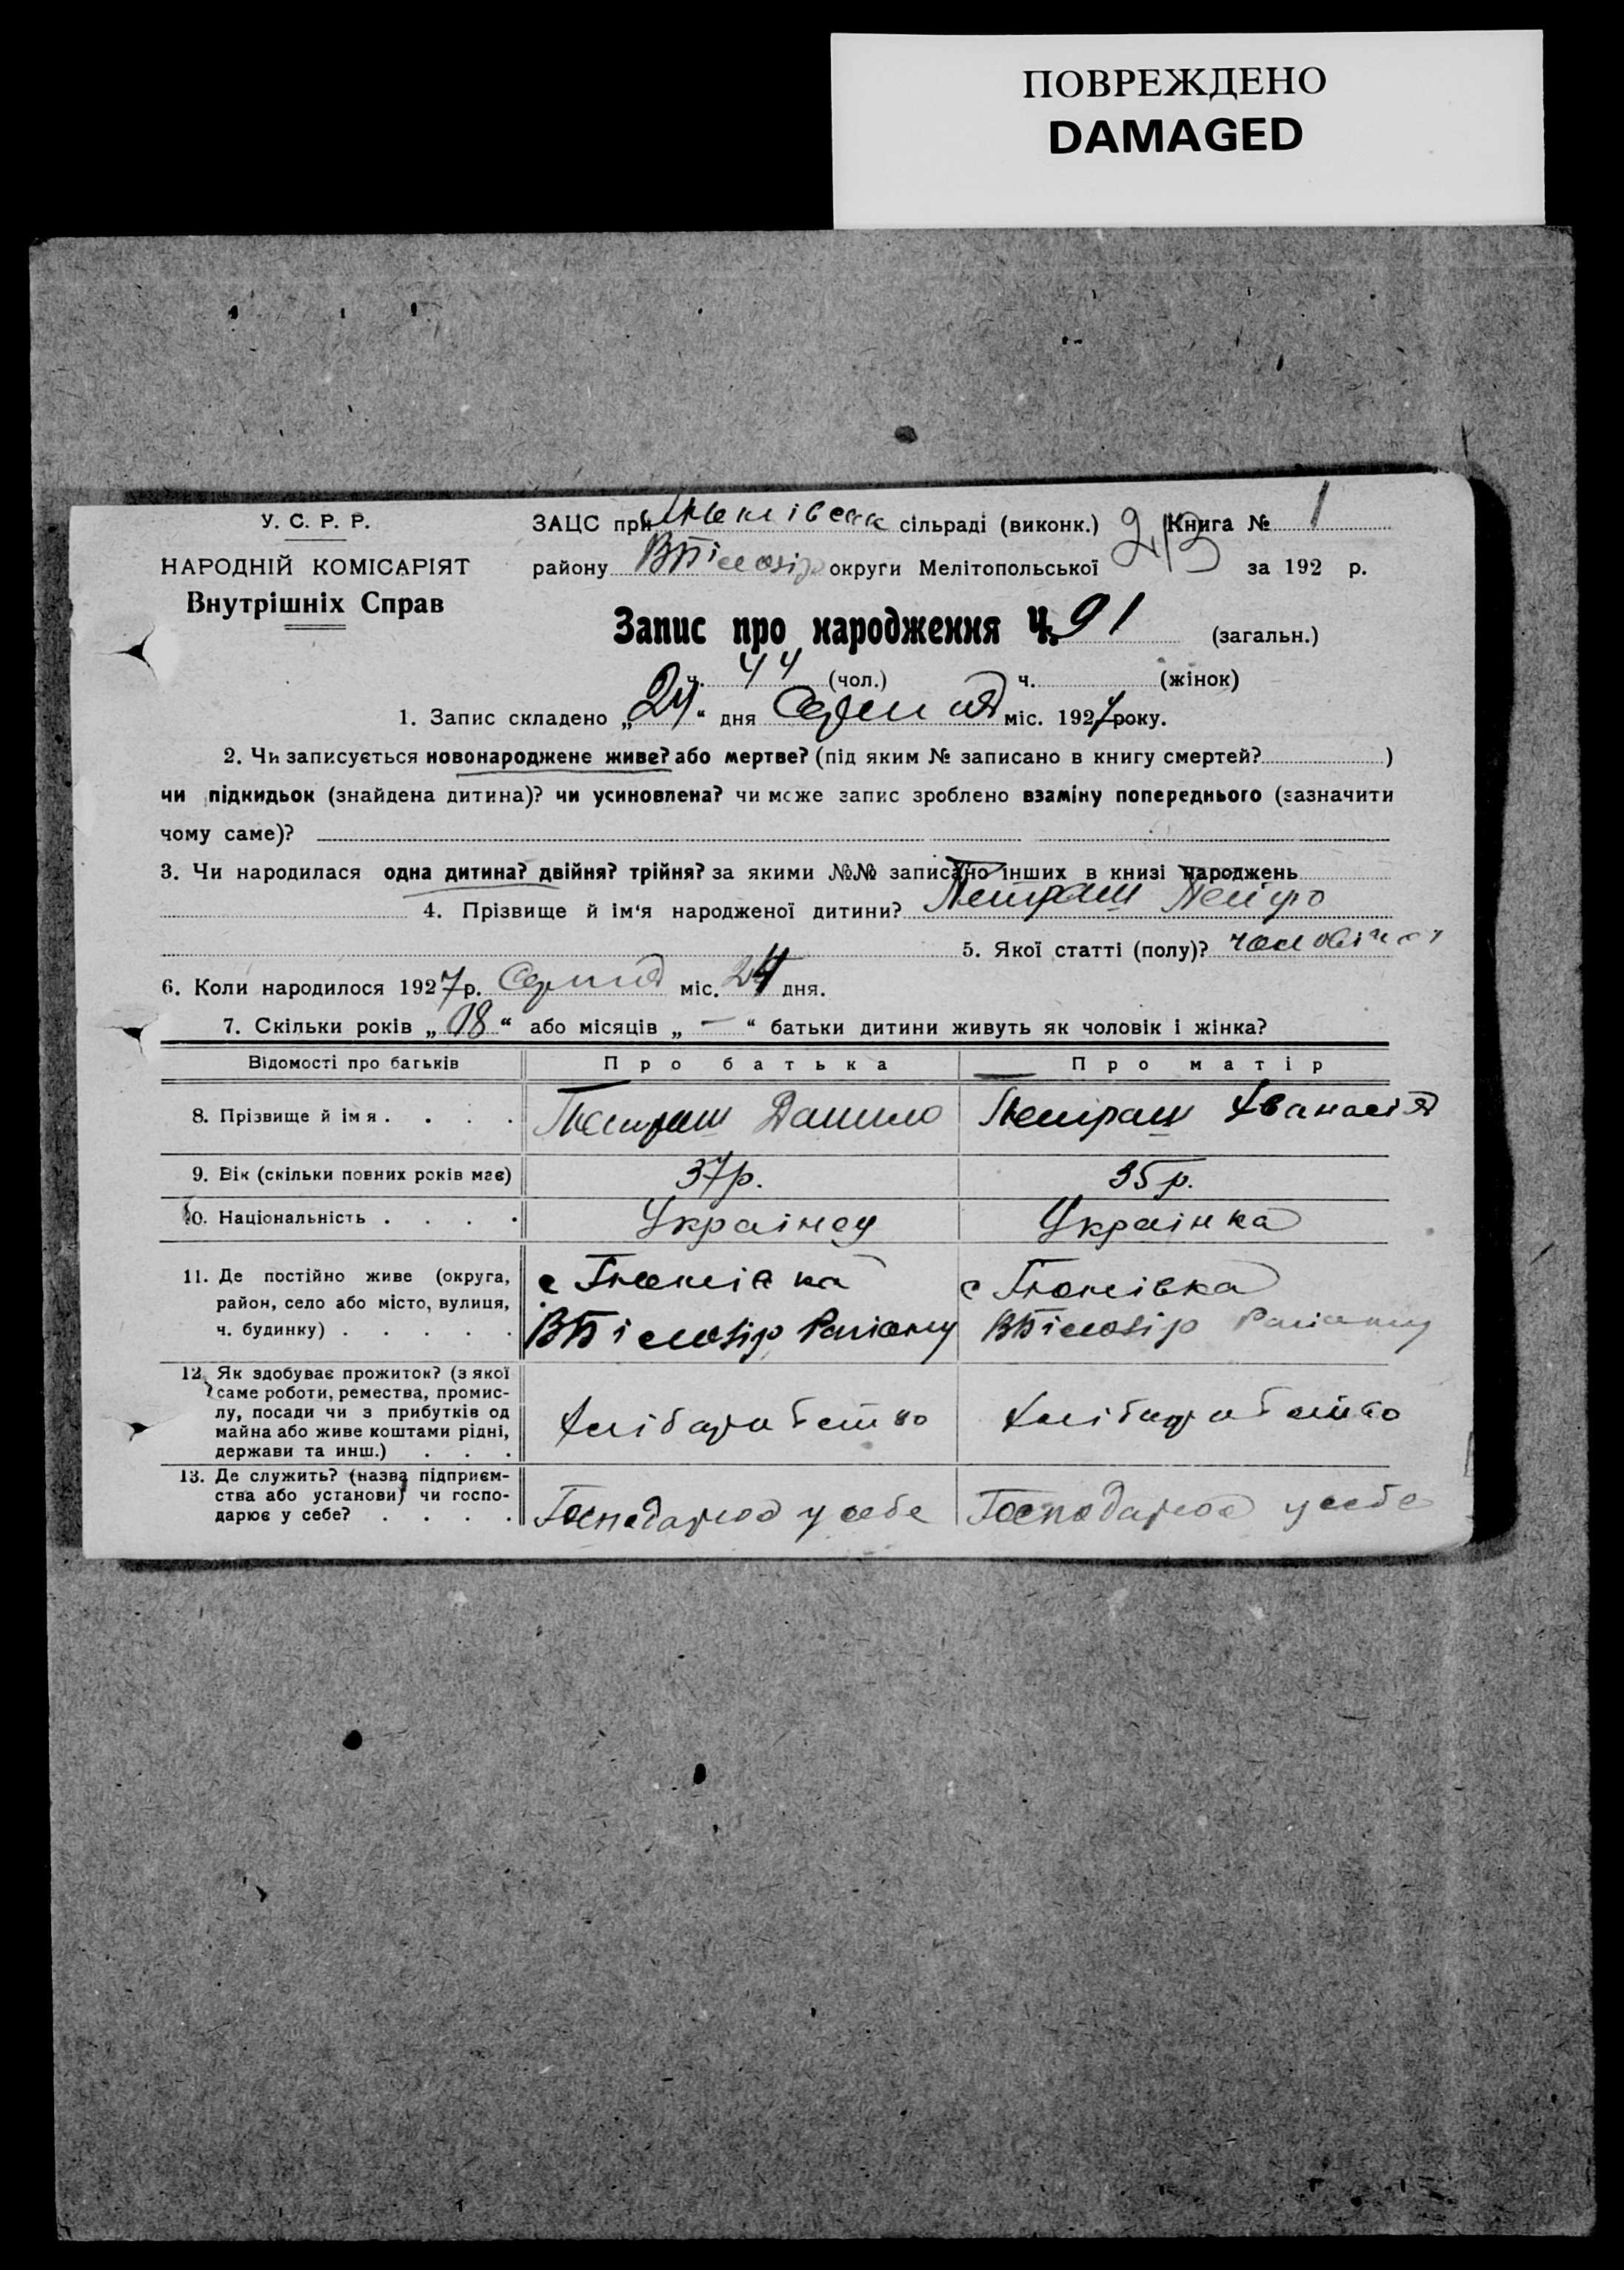 ПОВРЕЖДЕНО
DAMAGED
У. С. Р. Р.
НАРОДНІЙ КОМІСАРІЯТ
Внутрішніх Справ
ЗАЦС при сільраді (виконк.) Книга № 1
району ВБілозір округи Мелітопольської за 192 р.
Запис про народження Ч. 91 (загальн.)
ч. 44 (чол.) ч. (жінок)
1. Запис складено „24“ дня Серпня міс. 1927 року.
2. Чи записується новонароджене живе? або мертве? (під яким № записано в книгу смертей? )
чи підкидьок (знайдена дитина)? чи усиновлена? чи може запис зроблено взаміну попереднього (зазначити
чому саме)?
3. Чи народилася одна дитина? двійня? трійня? за якими №№ записано інших в книзі народжень
4. Прізвище й ім‘я народженої дитини? Петраш Петро
5. Якої статті (полу)?
6. Коли народилося 1927 р. Серпня міс. 24 дня.
7. Скільки років „18“ або місяців „—“ батьки дитини живуть як чоловік і жінка?
Відомості про батьків Про батька Про матір
8. Прізвище й імя . . . . Петраш Данило Петраш
9. Вік (скільки повних років має) 37р. 35р.
10. Національність . . . . Українец Українка
11. Де постійно живе (округа,
район, село або місто, вулиця,
ч. будинку) . . . . .
ВБілозір Району ВБілозір Району
12. Як здобуває прожиток? (з якої
саме роботи, ремества, промис-
лу, посади чи з прибутків од
майна або живе коштами рідні,
держави та инш.) . . .
Хліборобство Хліборобство
13. Де служить? (назва підприєм-
ства або установи) чи госпо-
дарює у себе? . . . .
Господарює у себе Господарює у себе